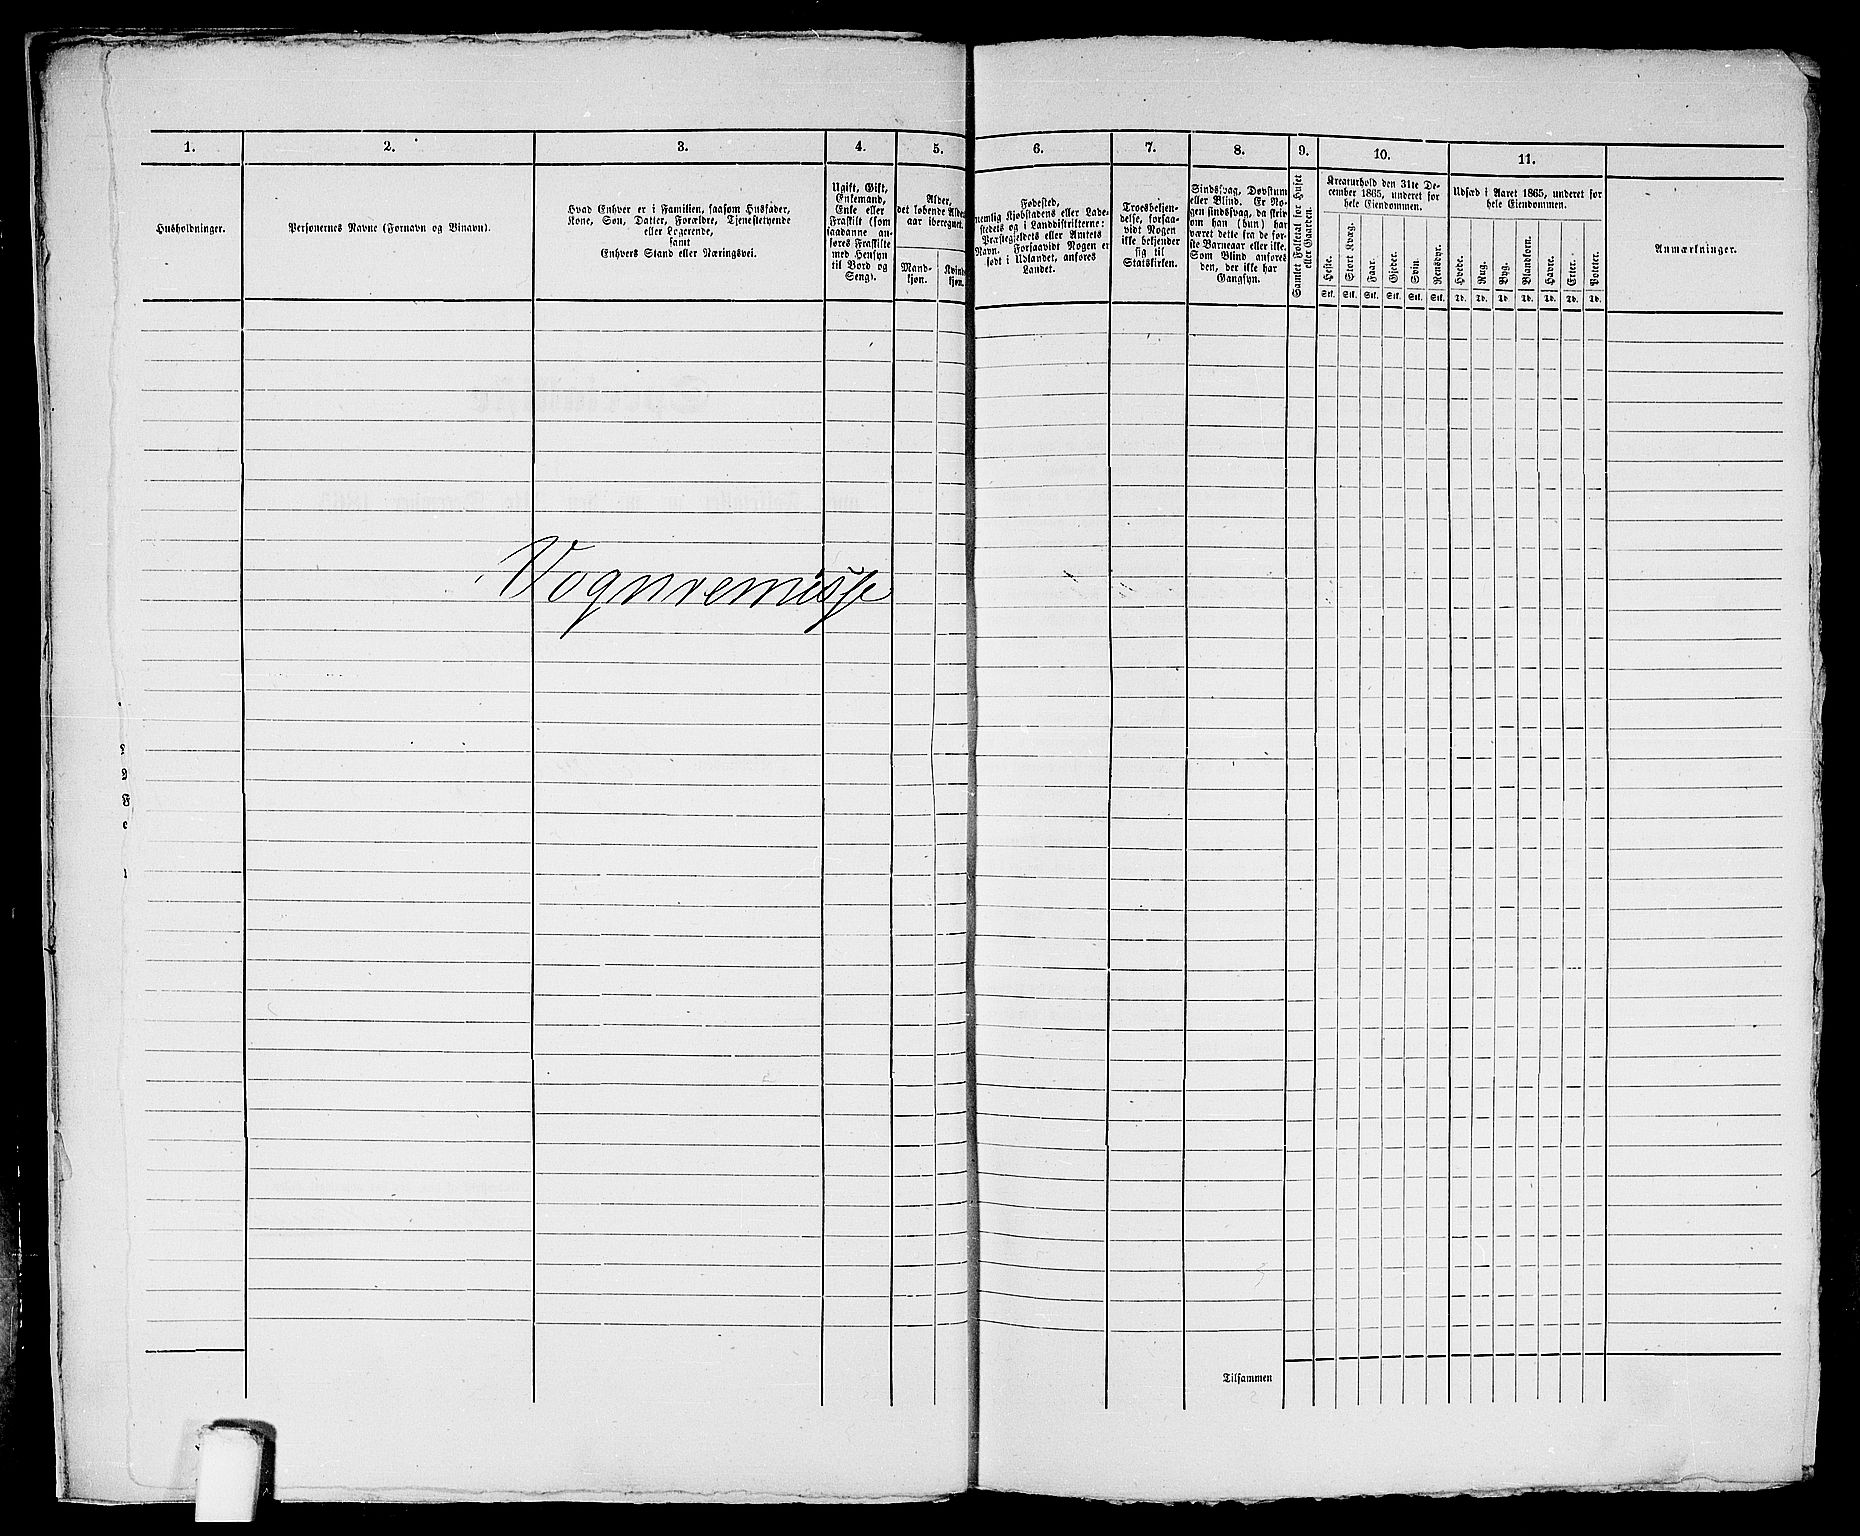 1.
Husholdninger.
2.
Personernes Navne (Fornavn og Binavn).
3.
Hvad Enhver er i Familien, saasom Husfader,
Kone, Søn, Datter, Forældre, Tjenestetyende
eller Logerende,
samt
Enhvers Stand eller Næringsvei.
4.
Ugift, Gift,
Enkemand,
Enke eller
Fraskilt (som
saadanne an-
føres Fraskilte
med Hensyn
til Bord og
Seng).
5.
Alder,
det løbende Alders-
aar iberegnet.
Mand-
kjøn.
Kvinde-
kjøn.
6.
Fødested,
nemlig Kjøbstadens eller Lade-
stedets og i Landdistrikterne:
Præstegjeldets eller Amtets
Navn. Forsaavidt Nogen er
født i Udlandet, anføres
Landet.
7.
Troesbekjen-
delse, forsaa-
vidt Nogen
ikke bekjender
sig til
Statskirken.
8.
Sindssvag, Døvstum
eller Blind. Er No-
gen sindssvag, da skriv
om han (hun) har
været dette fra de før-
ste Barneaar eller ikke.
Som Blind anføres
den, der ikke har
Gangsyn.
9.
Samlet Folketal for Huset
eller Gaarden.
10.
Kreaturhold den 31te De-
cember 1865, underet for
hele Eiendommen.
Heste.
Stort Kvæg.
Faar.
Gjeder.
Svin.
Rensdyr.
Stk. Stk. Stk. Stk. Stk. Stk.
11.
Udsæd i Aaret 1865, underet for
hele Eiendommen.
Hvede.
Rug.
Byg.
Blandkorn.
Havre.
Erter.
Poteter.
Td. Td. Td. Td. Td. Td. Td.
Anmærkninger.
Vognremisse
Tilsammen